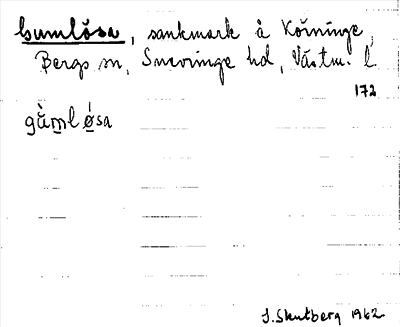 Gumlösa, sankmark å Körninge,
Bergs sn, Snevringe hd, Västm. l.
172
gùmlǿsa
J. Skutberg 1962